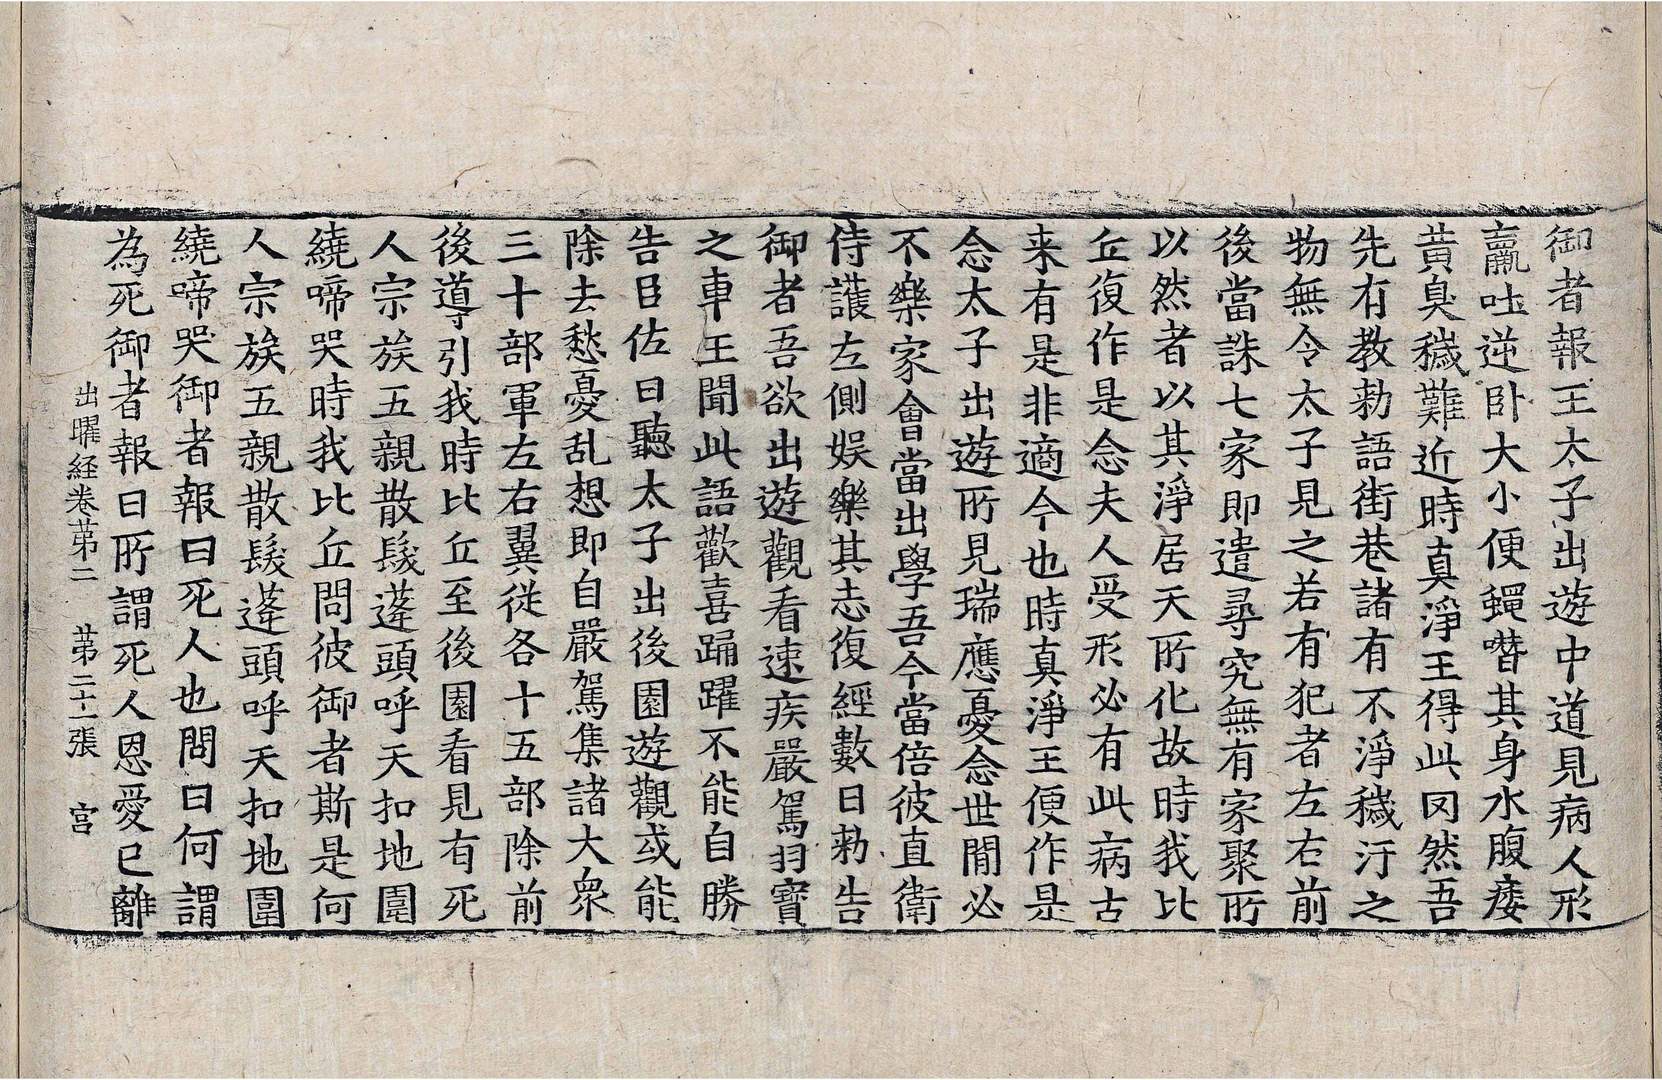 御者報王太子出遊中道見病人形
羸吐逆卧大小便蠅噆其身水腹痿
黃臭穢難近時真淨王得此罔然吾
先有教勑語街巷諸有不淨穢汙之
物無令太子見之若有犯者左右前
後當誅七家即遣尋究無有家聚所
以然者以其淨居天所化故時我比
丘復作是念夫人受形必有此病古
来有是非適今也時真淨王便作是
念太子出遊所見瑞應憂念世間必
不樂家會當出學吾今當倍彼直衛
侍護左側娛樂其志復經數日勑告
御者吾欲出遊觀看速疾嚴駕羽寶
之車王聞此語歡喜踊躍不能自勝
告臣佐曰聽太子出後園遊觀或能
除去愁憂乱想即自嚴駕集諸大衆
三十部軍左右翼從各十五部除前
後導引我時比丘至後園看見有死
人宗族五親散髮蓬頭呼天扣地圍
繞啼哭時我比丘問彼御者斯是何
人宗族五親散髮蓬頭呼天扣地圍
繞啼哭御者報曰死人也問曰何謂
為死御者報曰所謂死人恩愛已離
出曜経卷苐二 苐二十一張 宫